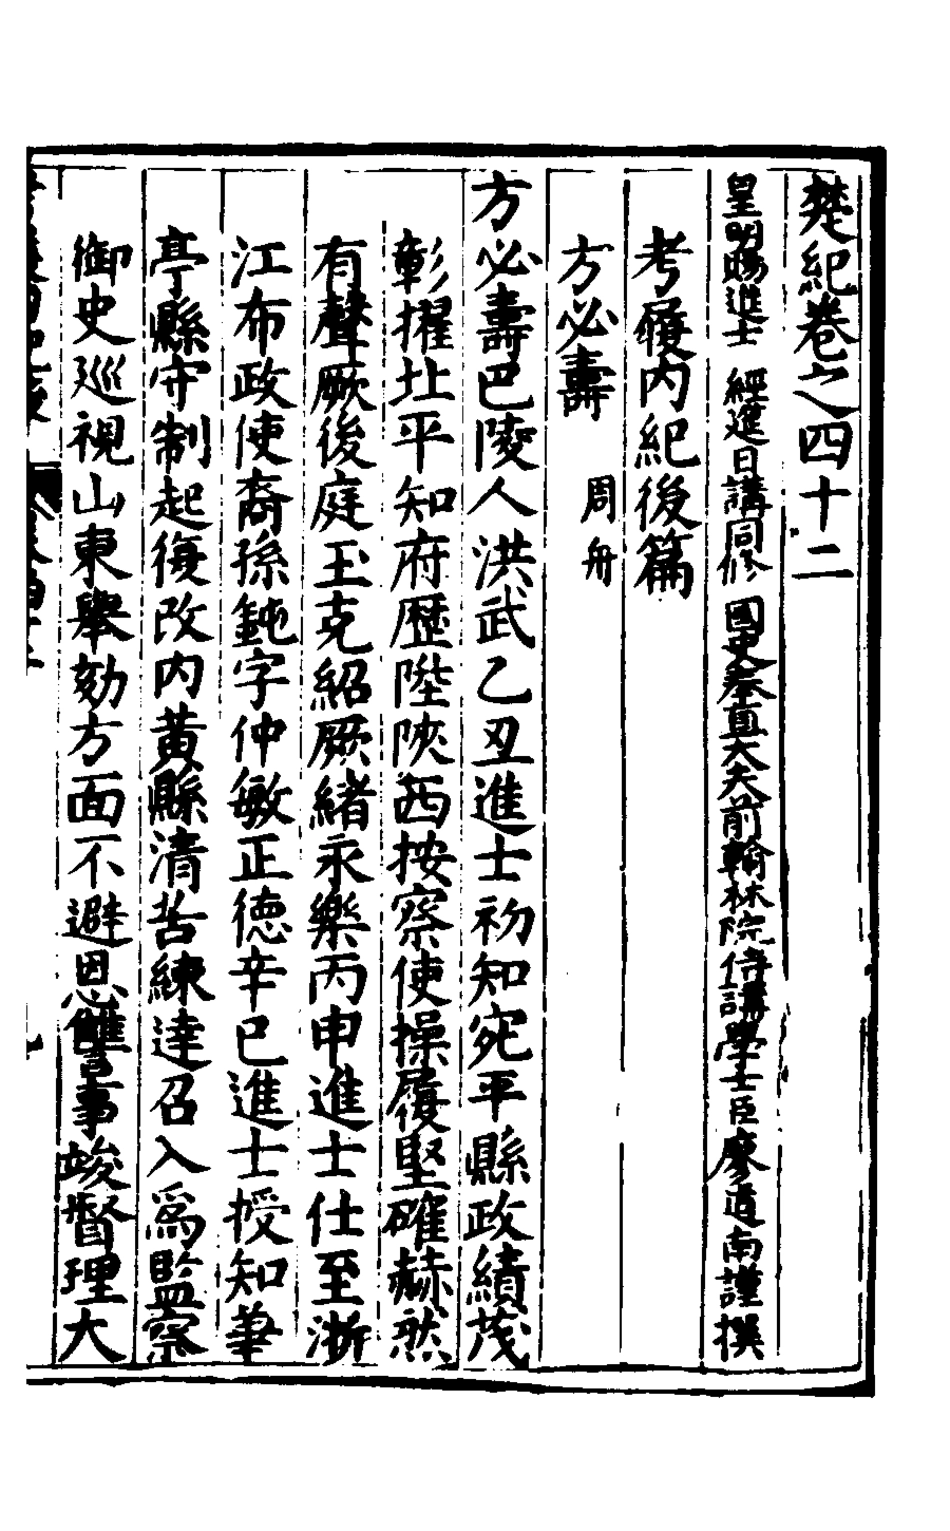 楚紀卷之四十二
皇明賜進士 經進日講同修 國史奉直大夫前翰林院侍講學士臣廖道南謹撰
考履內紀後篇
方必壽 周舟
方必壽巴陵人洪武乙丑進士初知宛平縣政績茂
彰擢北平知府歷陞陝西按察使操履堅確赫然
有聲厥後庭玉克紹厥緒永樂丙申進士仕至浙
江布政使裔孫鈍字仲敏正德辛巳進士授知華
亭縣守制起復改內黃縣清苦練達召入為監察
御史巡視山東舉劾方面不避恩讎事竣督理大